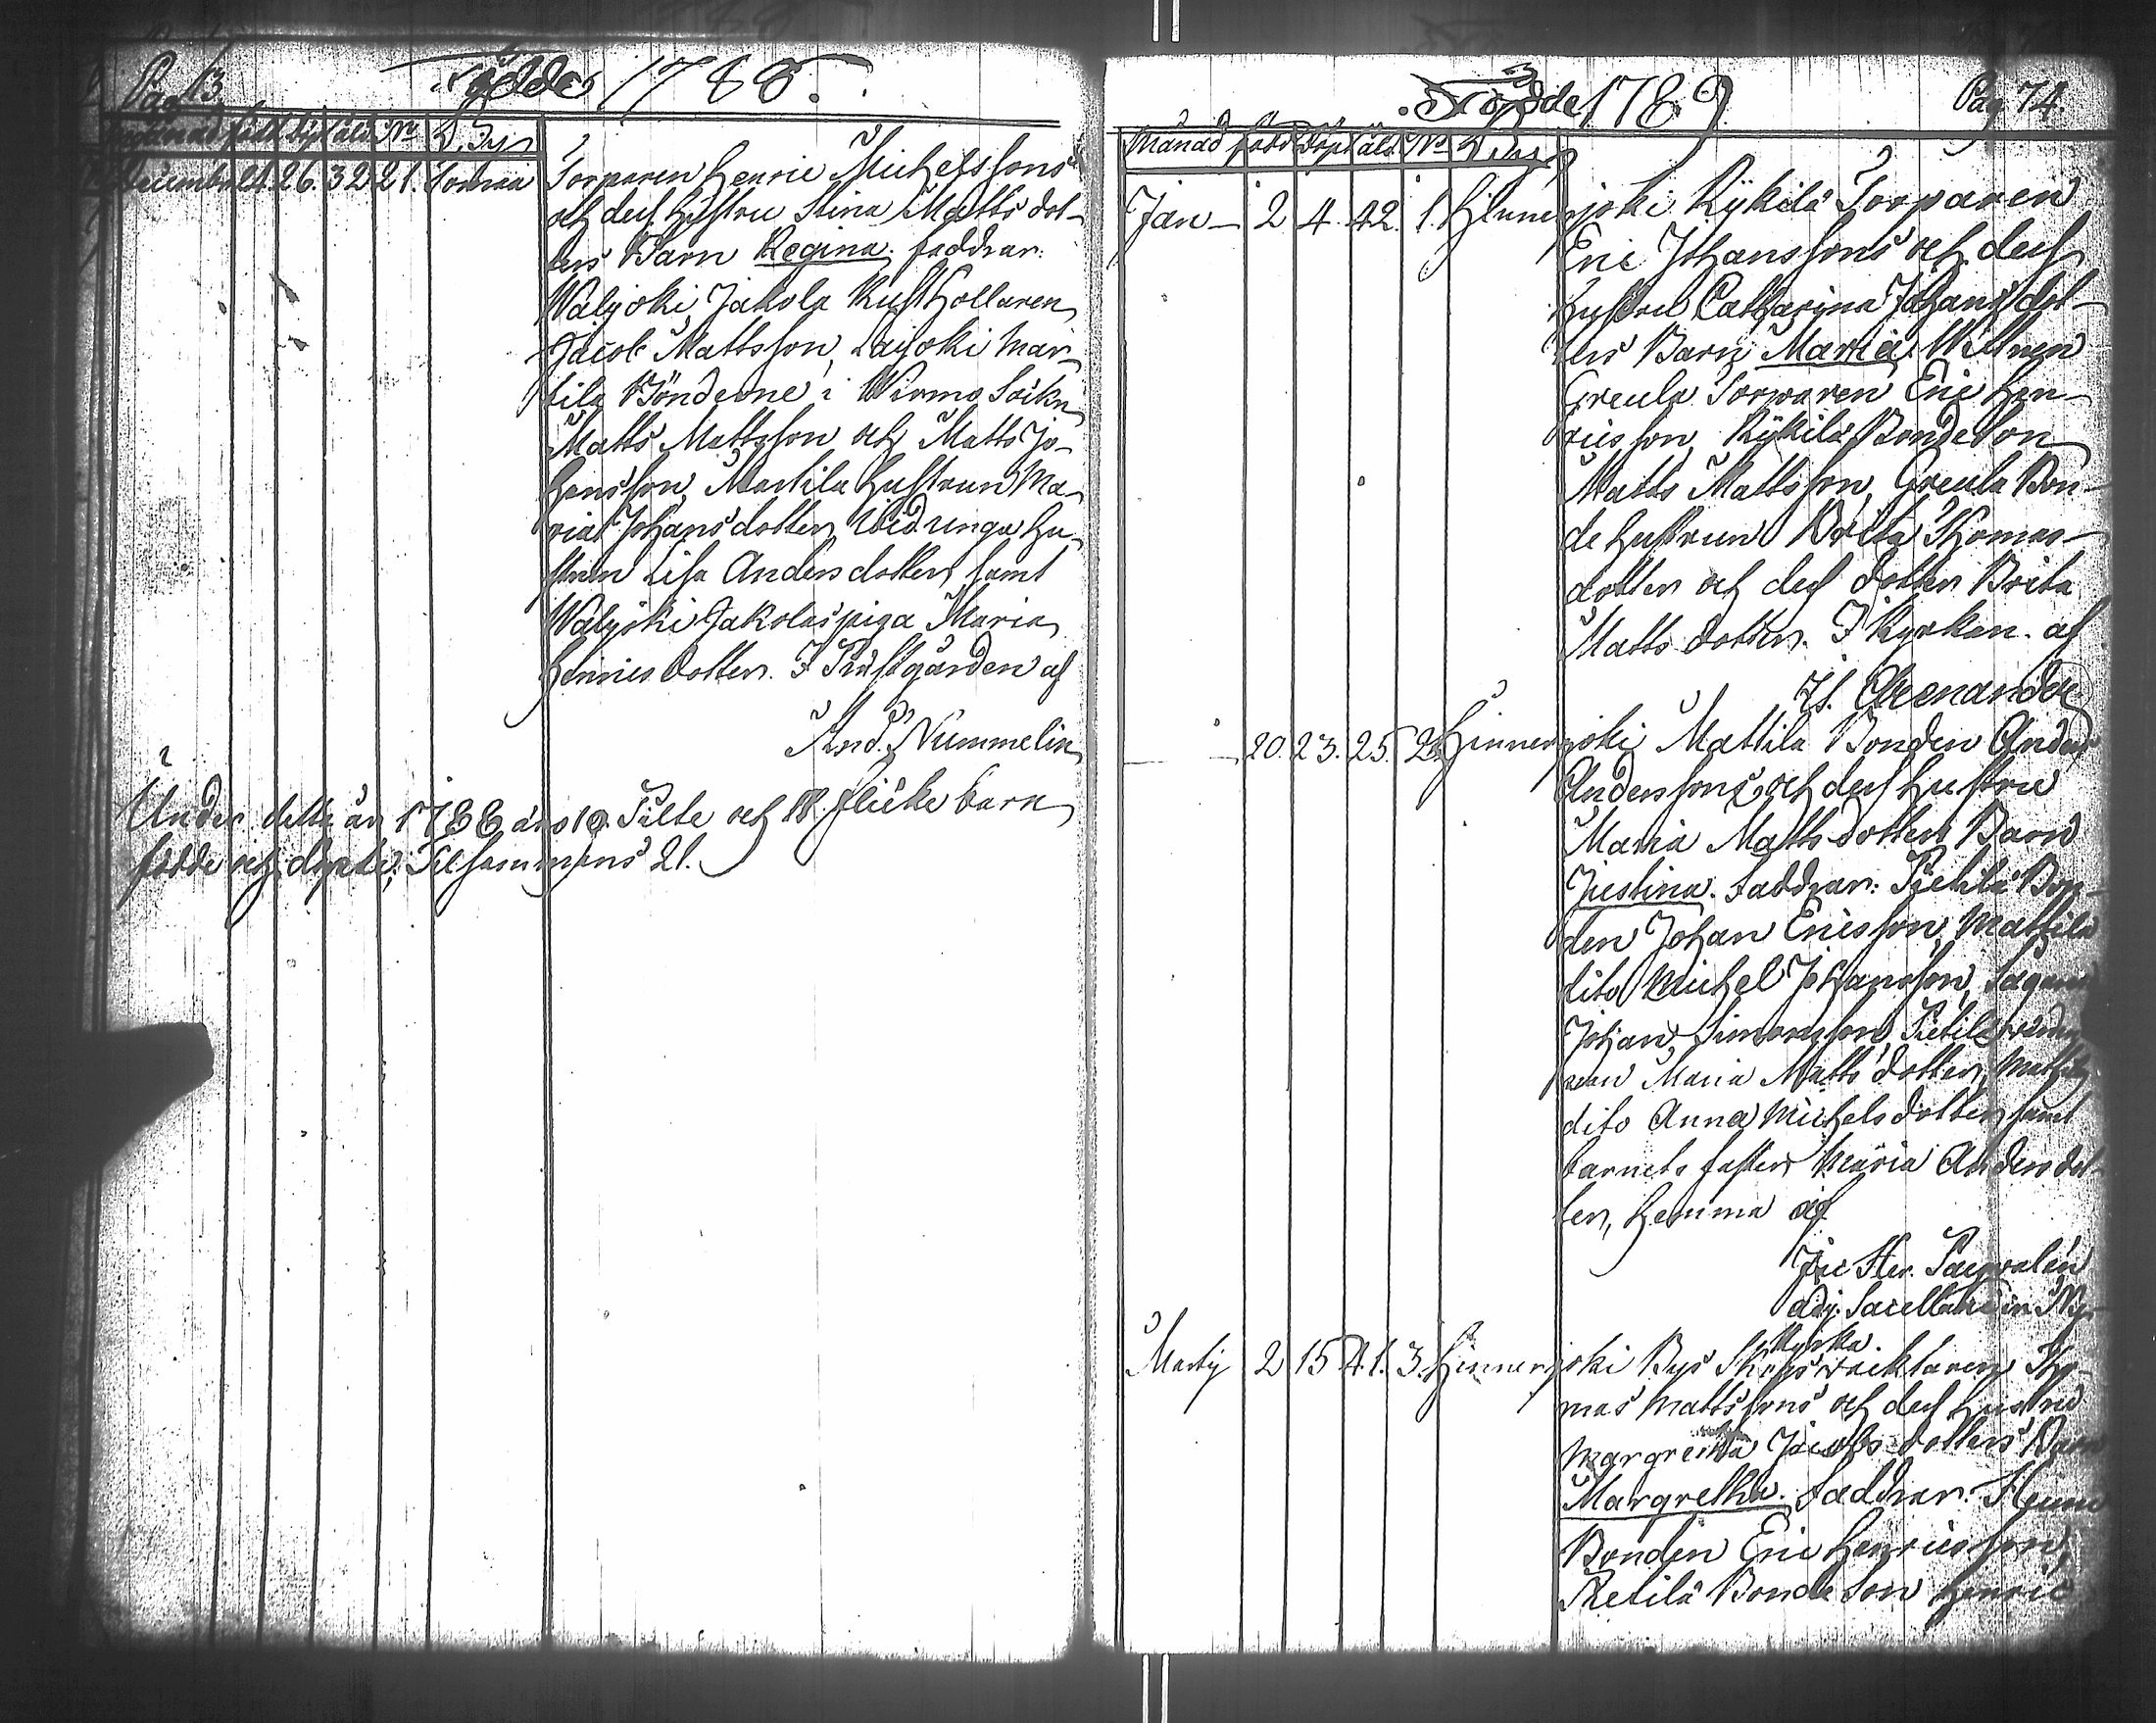 Pag 73.
Födde 1788.
Månad född döpt åld. No By
December 24. 26. 32. 21. Torparen Henric Michelssons
och dess hustru Stina Matts dot-
ters Barn Regina. faddrar:
Walijoki Jakola Rusthollaren
Jacob Mattsson, Laijoki Mar-
tila Bönderne i Wirmo Sockn
Matts Mattsson och Matts Jo-
hansson, Martila Hustrun Ma-
ria Johans dotter, Widrunga hu-
strun Lisa Anders dotter, samt
Walijoki Jakolas piga Maria
Henrics dotter. I Prästgården af
And. Nummelin
Under detta år 1788 äro 10. Pilte och 11. flicke barn
födde och döpte, Tilsammans 21.
Födde 1789
Pag 74.
Månad född döpt åld. No By
Jan— 2 4. 42. 1. Hinnerjoki Kykilä Torparen
Eric Johanssons och dess
hustru Catharina Johans dot-
ters Barn Maria. Wittnen
Greula Torparen Eric Hen-
ricsson, Kykilä Bondeson
Matts Mattsson, Greula Bon-
de hustrun Brita Thomas-
dotter och dess dotter Brita
Matts dotter. I Kyrkan. af
Is. Chenander
— 20. 23. 25. 2. Hinnerjoki Mattila Bonden Anders
Anderssons och dess hustru
Maria Matts dotters Barn
Justina. Faddrar: Pietilä Bon-
den Johan Ericsson, Mattila
dito Michel Johansson,
Johan Simonsson, Pietilä
Maria Matts dotter, Mattila
dito Anna Michels dotter, samt
barnets faster Maria Anders dot-
ter, hemma af
Adj. Sacellani in Ny
Kyrka.
Martij 2 15 41. 3. Hinnerjoki Bys Skogswacktaren Tho-
mas Mattssons och dess hustru
Margretha Jacobs dotters Barn
Margretha. Faddrar:
Bonden Eric Henricsson,
Pietilä Bonde Son Henric